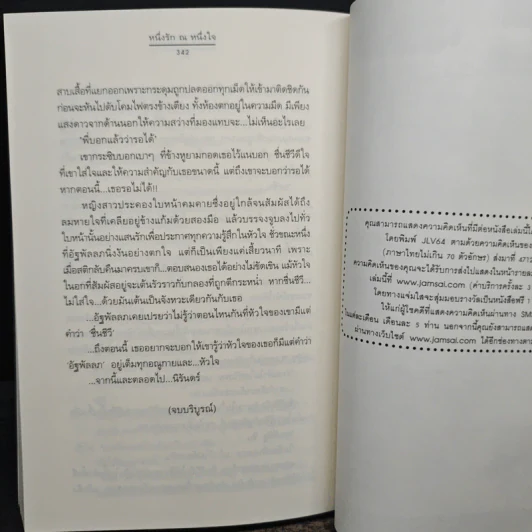 หนึ่งรัก ณ หนึ่งใจ
342
สาบเสื้อที่แยกออกเพราะกระดุมถูกปลดออกทุกเม็ดให้เข้ามาติดชิดกัน
ก่อนจะหันไปดับโคมไฟตรงข้างเตียง ทั้งห้องตกอยู่ในความมืด มีเพียง
แสงดาวจากด้านนอกให้ความสว่างที่มองแทบจะ...ไม่เห็นอะไรเลย
'พี่บอกแล้วว่ารอได้'
เขากระซิบบอกเบาๆ ที่ข้างหูยามกอดเธอไว้แนบอก ชื่นชีวีดีใจ
ที่เขาใส่ใจและให้ความสำคัญกับเธอขนาดนี้ แต่ถึงเขาจะบอกว่ารอได้
หากตอนนี้...เธอรอไม่ได้!!
หญิงสาวประคองใบหน้าคมคายซึ่งอยู่ใกล้จนสัมผัสได้ถึง
ลมหายใจที่เคลียอยู่ข้างแก้มด้วยสองมือ แล้วบรรจงจูบลงไปทั่ว
ใบหน้านั้นอย่างแสนรักเพื่อประกาศทุกความรู้สึกในหัวใจ ชั่วขณะหนึ่ง
ที่อัฐพัลลภนิ่งงันอย่างตกใจ แต่ก็เป็นเพียงแค่เสี้ยวนาที เพราะ
เมื่อสติกลับคืนมาครบเขาก็...ตอบสนองเธอได้อย่างไม่ขัดเขิน แม้หัวใจ
ในอกที่สัมผัสอยู่จะเต้นรัวราวกับกลองที่ถูกตีกระหน่ำ หากชื่นชีวี...
ไม่ใส่ใจ...ด้วยมันเต้นเป็นจังหวะเดียวกันกับเธอ
...อัฐพัลลภเคยเปรยว่าไม่รู้ว่าตอนไหนกันที่หัวใจของเขามีแต่
คำว่า 'ชื่นชีวี'
...ถึงตอนนี้ เธออยากจะบอกให้เขารู้ว่าหัวใจของเธอก็มีแต่คำว่า
'อัฐพัลลภ' อยู่เต็มทุกอณูกายและ...หัวใจ
...จากนี้และตลอดไป...นิรันดร์
(จบบริบูรณ์)
คุณสามารถแสดงความคิดเห็นที่มีต่อหนังสือเล่มนี้ได้
โดยพิมพ์ JLV64 ตามด้วยความคิดเห็นของ
(ภาษาไทยไม่เกิน 70 ตัวอักษร) ส่งมาที่
ความคิดเห็นของคุณจะได้รับการส่งไปแสดงในหน้ารายละ
เล่มนี้ที่ www.jamsai.com (ค่าบริการครั้งละ 3
โดยทางแจ่มใสจะสุ่มมอบรางวัลเป็นหนังสือฟรี 1
ให้แก่ผู้โชคดีที่แสดงความคิดเห็นผ่านทาง SM
ในแต่ละเดือน เดือนละ 5 ท่าน นอกจากนี้คุณยังสามารถแสด
ผ่านทางเว็บไซต์ www.jamsai.com ได้อีกช่องทางด